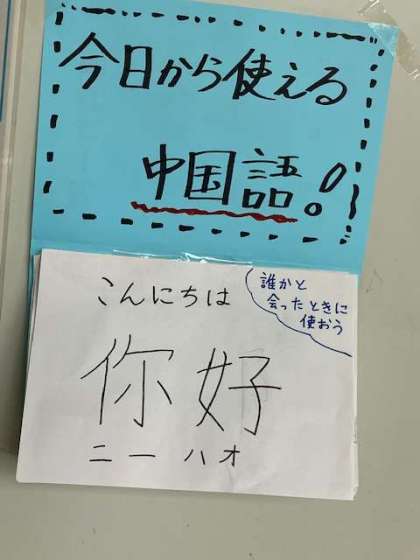 今日から使える
中国語!
こんにちは
誰かと
会ったときに
使おう
你好
ニーハオ